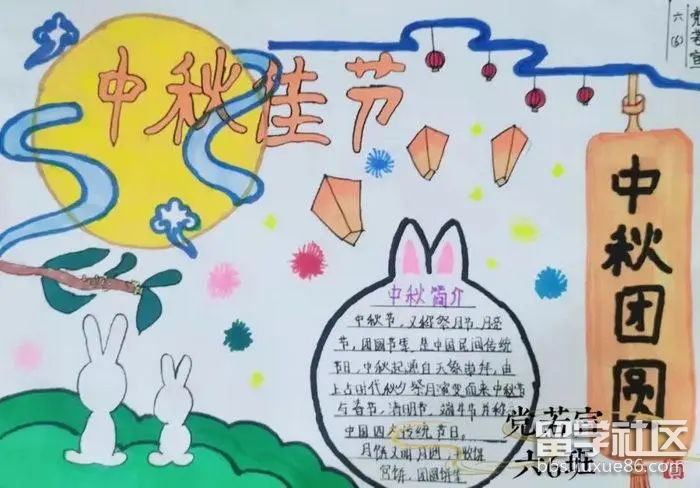 中秋佳节
党若宣
六(6)
中秋团圆
中秋简介
中秋节,又称祭月节、月
节、团圆节等,是中国民间传统
节日,中秋起源自天象崇拜,由
上古时代秋夕祭月演变而来中秋节
与春节、清明节、端午节并称
中国四大传统节日。
月饼又
宫饼、团圆饼
党若宣
六6班
留学社区
bbs.liuxue86.com